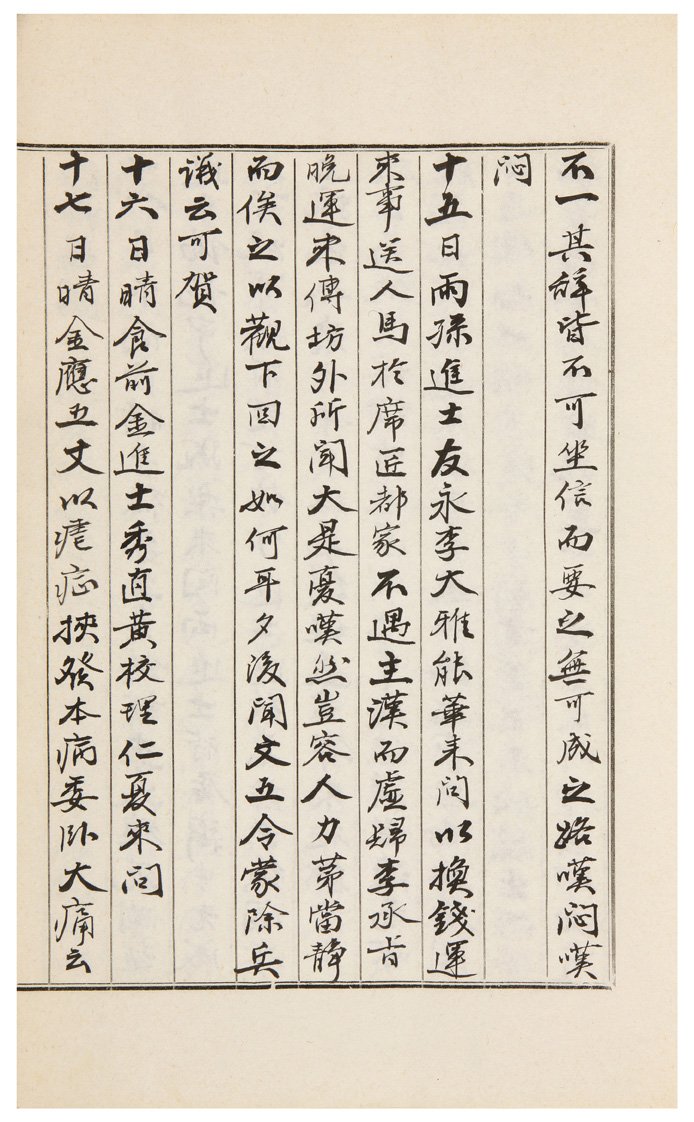 不一其辞皆不可坐信而要之無可成之路嘆悶嘆
悶
十五日雨孫進士友永李大雅能華来問以換錢運
来事送人馬於席匠都家不遇主漢而虚歸李承旨
晩運来傳坊外所聞大是憂嘆然豈容人力苐當静
而俟之以觀下回之如何耳夕後聞文五令蒙除兵
議云可賀
十六日晴食前金進士秀直黄校理仁夏来問
十七日晴金應五丈以瘧症挾發本病委卧大痛云